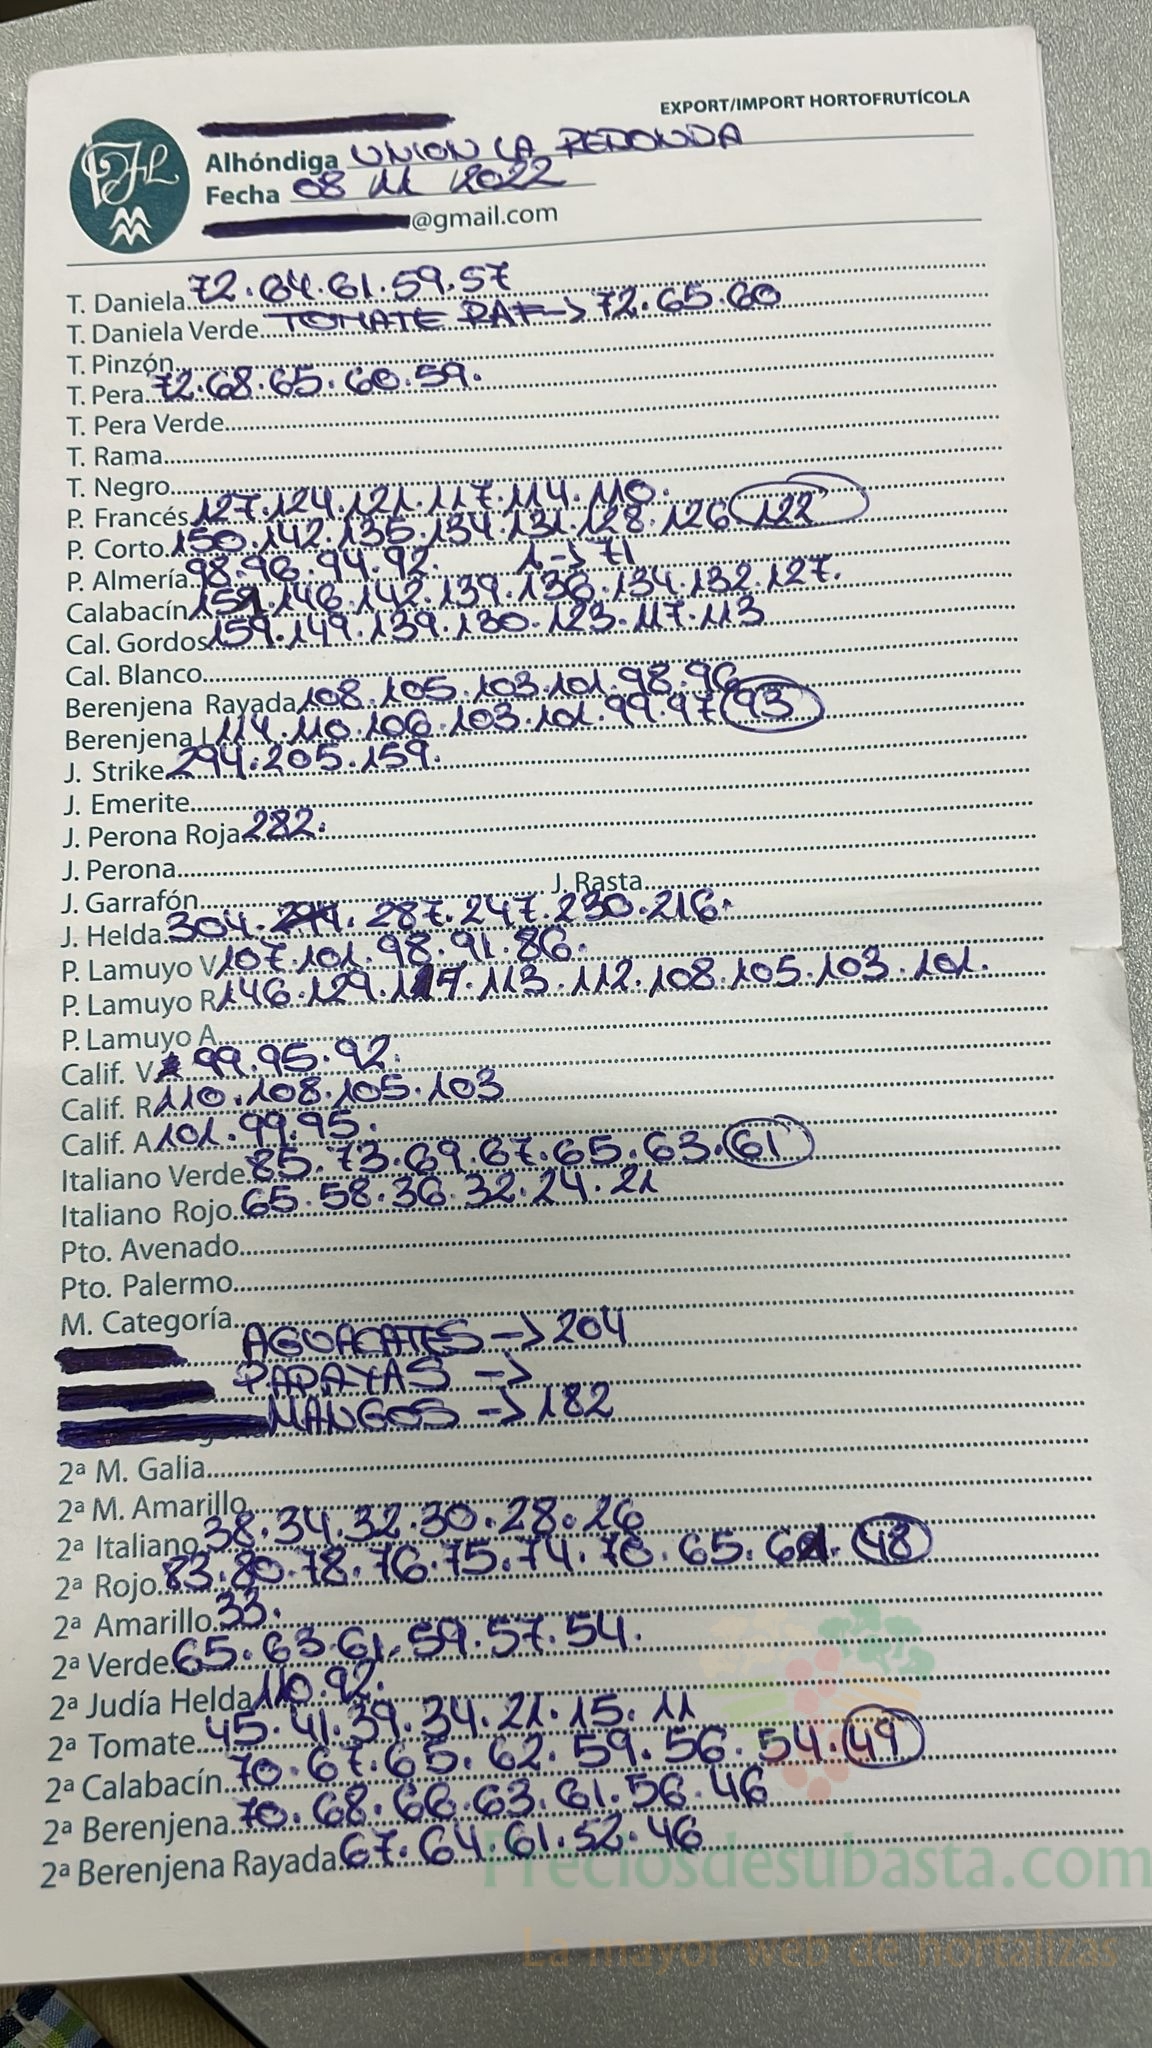 EXPORT/IMPORT HORTOFRUTÍCOLA
Alhóndiga UNION LA REDONDA
Fecha 08 11 2022
@gmail.com
T. Daniela 72.64.61.59.57
T. Daniela Verde TOMATE RAF -> 72.65.60
T. Pinzón
T. Pera 72.68.65.60.59.
T. Pera Verde
T. Rama
T. Negro
P. Francés 127.124.121.117.114.110.
P. Corto 150.142.135.134.131.128.126 122
P. Almería 98.96.94.92. 1->71
Calabacín 151.146.142.139.136.134.132.127.
Cal. Gordos 159.149.139.130.123.117.113
Cal. Blanco
Berenjena Rayada 108.105.103.101.98.96
Berenjena L 114.110.106.103.101.99.97 93
J. Strike 294.205.159.
J. Emerite
J. Perona Roja 282.
J. Perona
J. Garrafón J. Rasta
J. Helda 304. 287.247.230.216.
P. Lamuyo V 107.101.98.91.86.
P. Lamuyo R 146.129.117.113.112.108.105.103.101.
P. Lamuyo A
Calif. V 99.95.92.
Calif. R 110.108.105.103
Calif. A 101.99.95.
Italiano Verde 85.73.69.67.65.63.61
Italiano Rojo 65.58.36.32.24.21
Pto. Avenado
Pto. Palermo
M. Categoría
AGUACATES -> 204
PAPAYAS ->
MANGOS -> 182
2ª M. Galia
2ª M. Amarillo
2ª Italiano 38.34.32.30.28.26
2ª Rojo 83.80.78.76.75.74.70.65.61.48
2ª Amarillo 33.
2ª Verde 65.63.61.59.57.54.
2ª Judía Helda 110.92.
2ª Tomate 45.41.39.34.21.15.11
2ª Calabacín 70.67.65.62.59.56.54.49
2ª Berenjena 70.68.66.63.61.56.46
2ª Berenjena Rayada 67.64.61.52.46
Preciosdesubasta.com
La mayor web de hortalizas